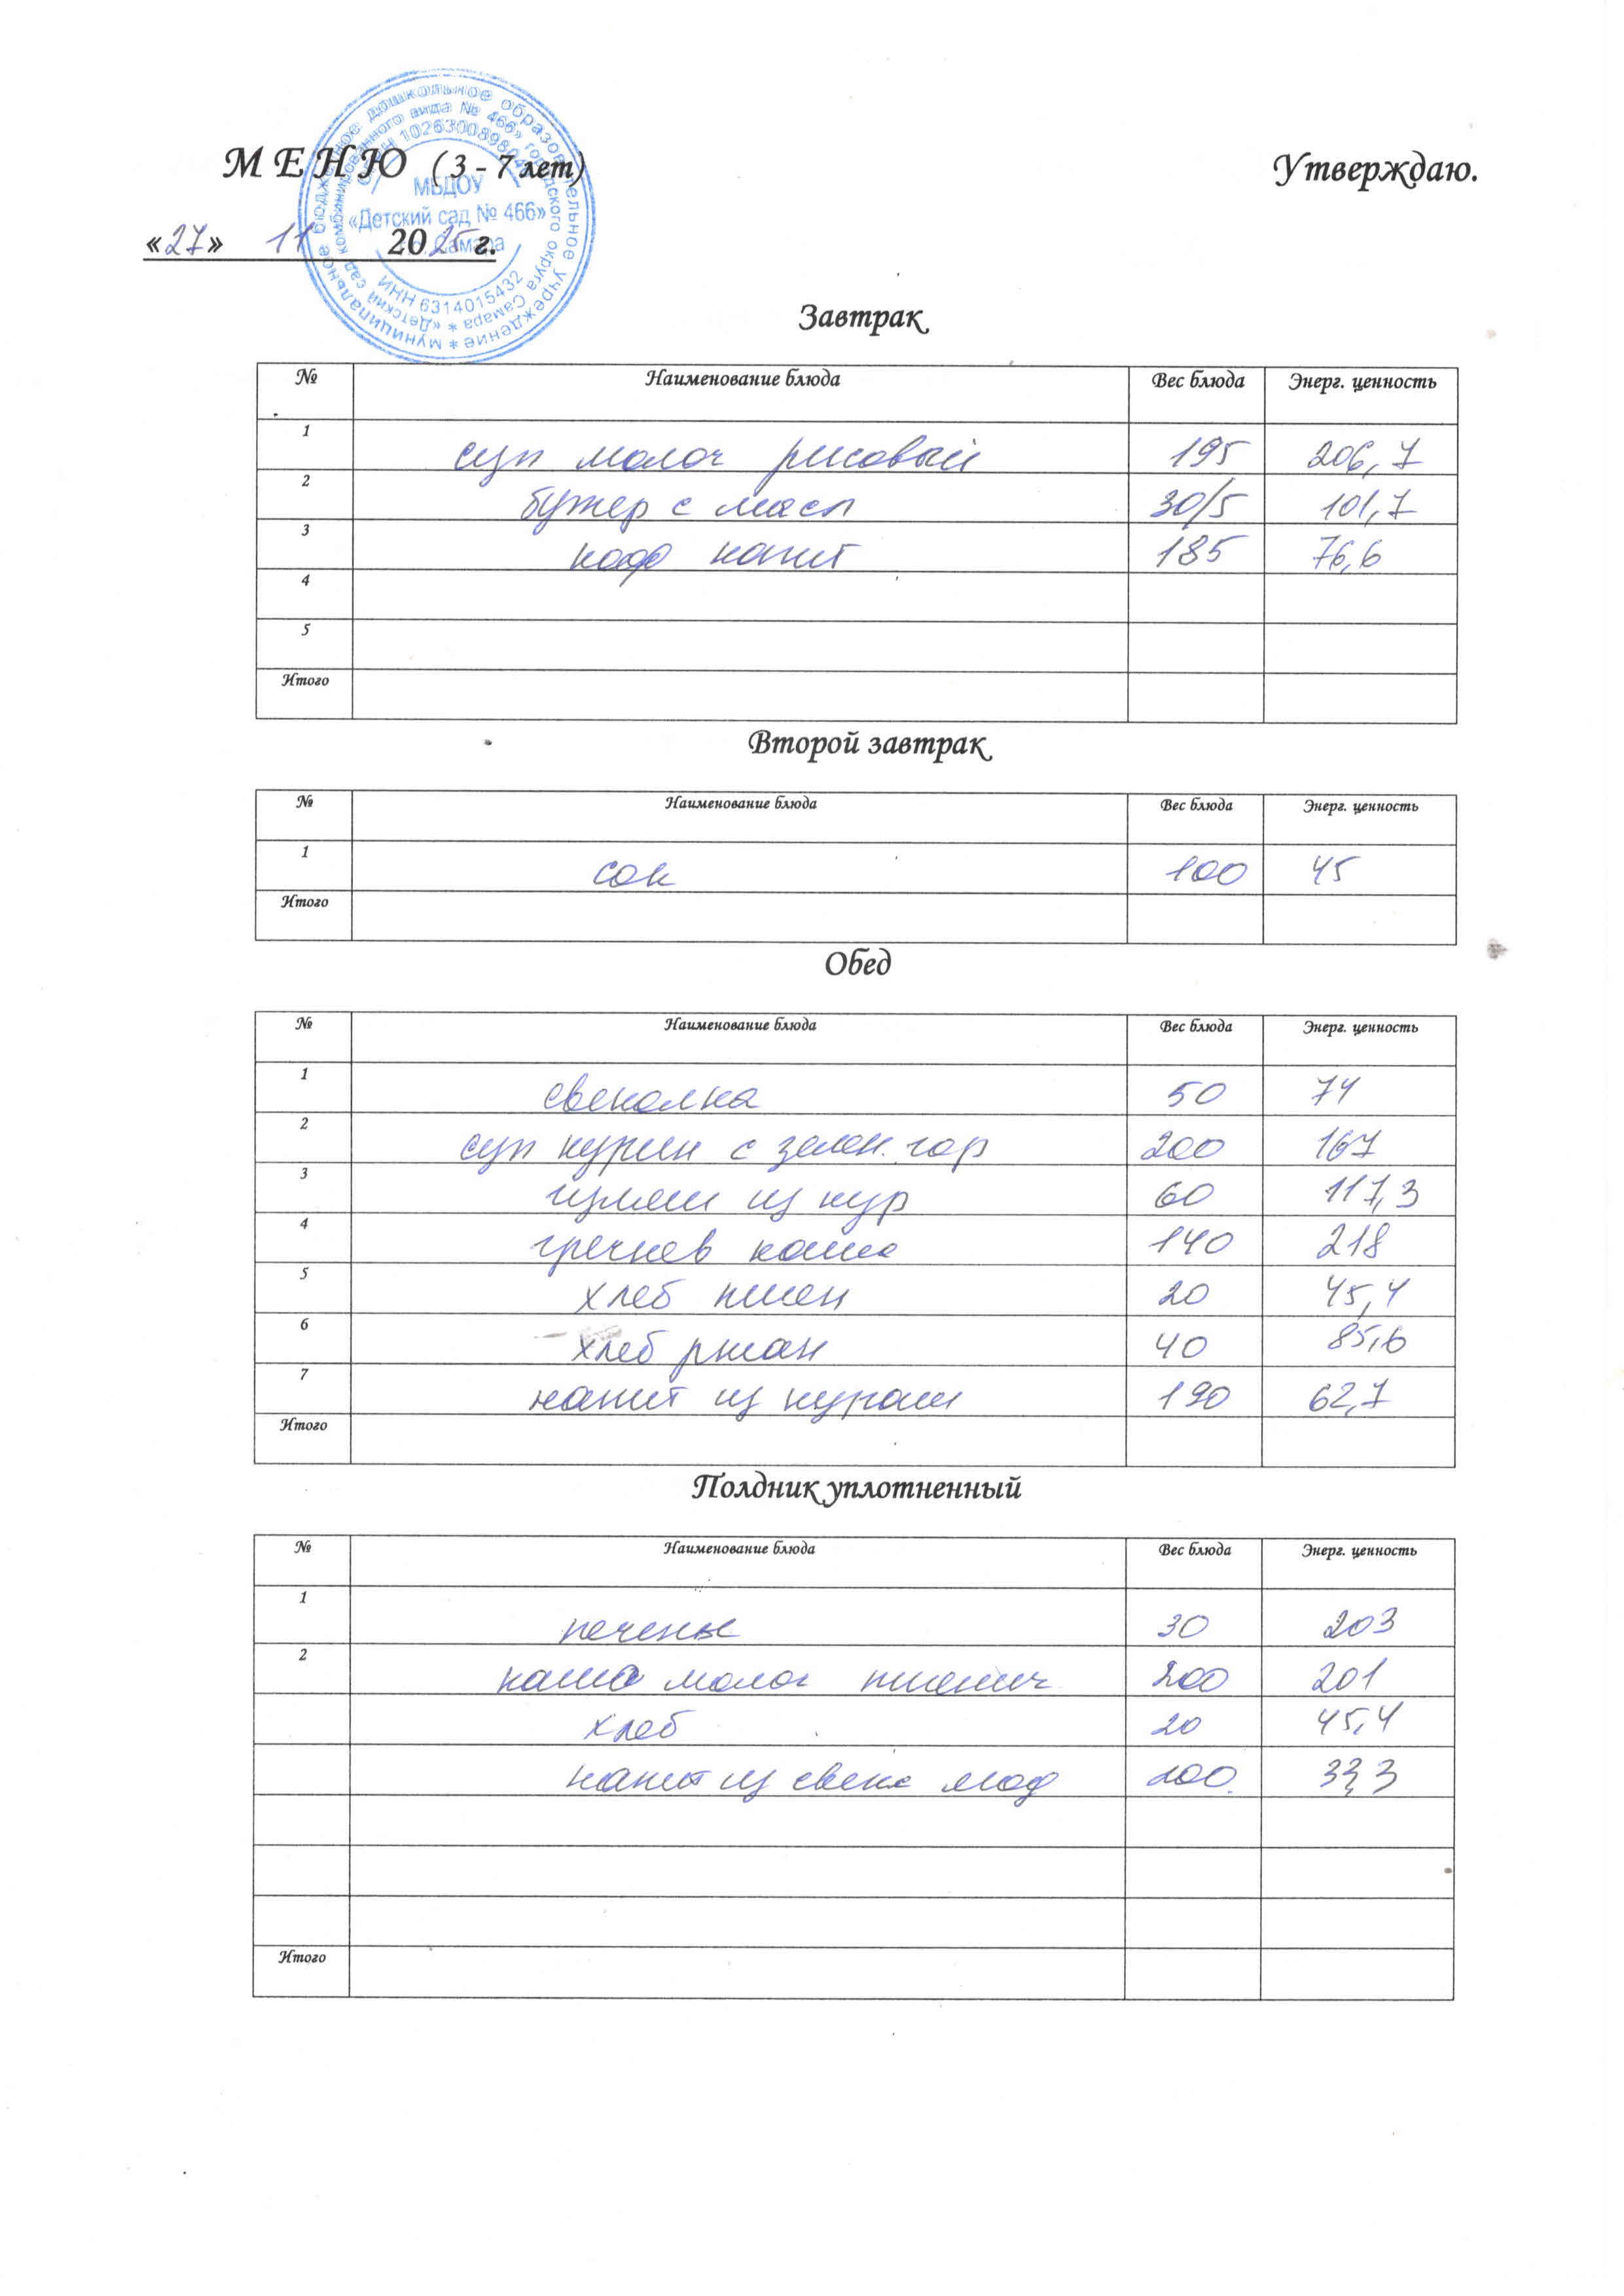 М Е Н Ю (3 - 7 лет) Утверждаю.
«27» 11 2025 г.
МБДОУ
«Детский сад № 466»
г.о. Самара
ИНН 6314015432
Завтрак
№ Наименование блюда Вес блюда Энерг. ценность
1 суп молоч рисовый 195 206,7
2 бутер с масл 30/5 101,7
3 коф напит 185 76,6
4
5
Итого
Второй завтрак
№ Наименование блюда Вес блюда Энерг. ценность
1 сок 100 45
Итого
Обед
№ Наименование блюда Вес блюда Энерг. ценность
1 свеколка 50 74
2 суп курин с зелен. гор 200 167
3 гуляш из кур 60 117,3
4 гречнев каша 140 218
5 хлеб пшен 20 45,4
6 хлеб ржан 40 85,6
7 напит из кураги 190 62,7
Итого
Полдник уплотненный
№ Наименование блюда Вес блюда Энерг. ценность
1 печенье 30 203
2 каша молоч пшенич 200 201
хлеб 20 45,4
напит из свеж ягод 200 33,3
Итого